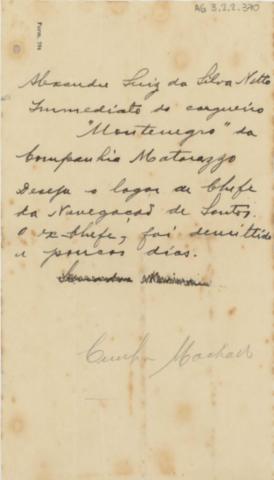 AG 3.2.2.370
Form. 194
Alexandre Luiz da Silva Netto
Immediato do cargueiro
"Montenegro" da
Companhia Matarazzo
Deseja o logar de Chefe
da Navegação de Santos.
O ex-chefe, foi demittido
a poucos dias.
Cunha Machado